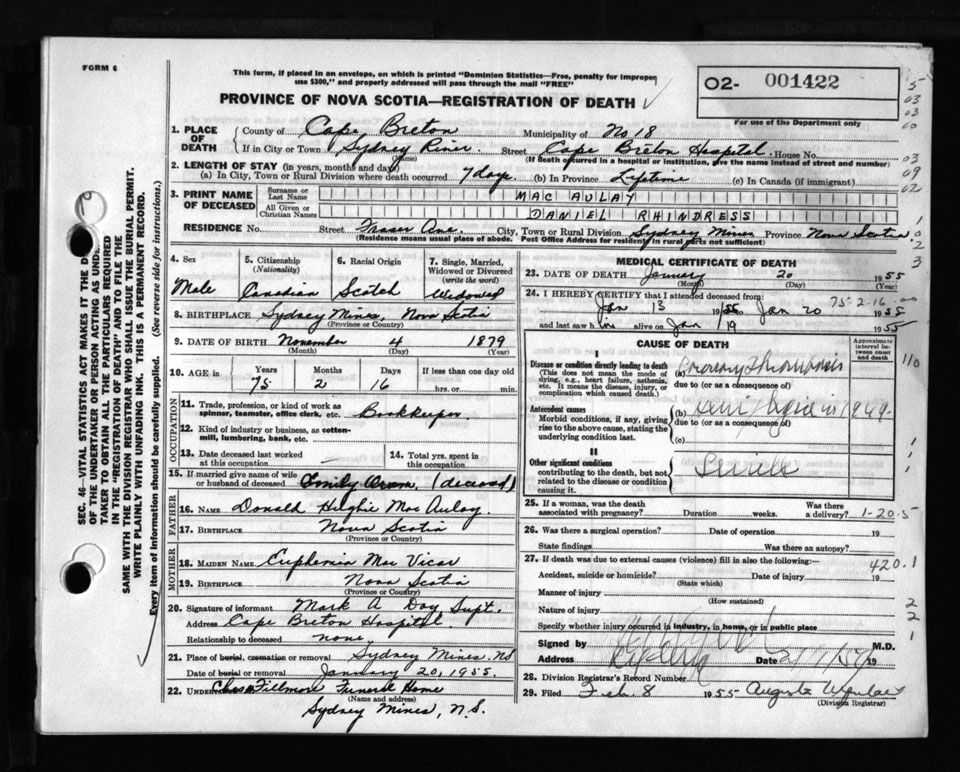 FORM 6
This form, if placed in an envelope, on which is printed "Dominion Statistics—Free, penalty for improper
use $300," and properly addressed will pass through the mail "FREE"
PROVINCE OF NOVA SCOTIA—REGISTRATION OF DEATH
O2- 001422
For use of the Department only
1. PLACE OF DEATH County of Cape Breton Municipality of No 18
If in City or Town Sydney River Street Cape Breton Hospital House No.
(Name) (If death occurred in a hospital or institution, give the name instead of street and number)
2. LENGTH OF STAY (in years, months and days)
(a) In City, Town or Rural Division where death occurred 7 days (b) In Province Lifetime (c) In Canada (if immigrant)
3. PRINT NAME OF DECEASED Surname or Last Name MAC AULAY
All Given or Christian Names DANIEL RHINDRESS
RESIDENCE No. Street Fraser Ave. City, Town or Rural Division Sydney Mines Province Nova Scotia
(Residence means usual place of abode. Post Office Address for residents in rural parts not sufficient)
4. Sex Male
5. Citizenship (Nationality) Canadian
6. Racial Origin Scotch
7. Single, Married, Widowed or Divorced (write the word) Widowed
8. BIRTHPLACE Sydney Mines, Nova Scotia
(Province or Country)
9. DATE OF BIRTH November 4 1879
(Month) (Day) (Year)
10. AGE in Years Months Days If less than one day old
75 2 16 hrs. or min.
OCCUPATION
11. Trade, profession, or kind of work as
spinner, teamster, office clerk, etc. Bookkeeper
12. Kind of industry or business, as cotton-
mill, lumbering, bank, etc.
13. Date deceased last worked
at this occupation
14. Total yrs. spent in
this occupation
15. If married give name of wife
or husband of deceased Emily (deceased)
FATHER
16. Name Donald Hughie Mac Aulay
17. Birthplace Nova Scotia
(Province or Country)
MOTHER
18. Maiden Name Euphemia Mac Vicar
19. Birthplace Nova Scotia
(Province or Country)
20. Signature of informant Mark A Supt.
Address Cape Breton Hospital
Relationship to deceased none
21. Place of burial, cremation or removal Sydney Mines, NS
Date of burial or removal January 20, 1955.
22. Fillmore Funeral Home
(Name and address)
Sydney Mines, N.S.
MEDICAL CERTIFICATE OF DEATH
23. DATE OF DEATH January 20 1955
(Month) (Day) (Year)
24. I HEREBY CERTIFY that I attended deceased from
75-2-16
Jan 13 1955 Jan 20 1955
and last saw him alive on Jan 19 1955
CAUSE OF DEATH
Approximate interval between onset and death
I
Disease or condition directly leading to death
(This does not mean the mode of dying, e.g., heart failure, asthenia, etc. It means the disease, injury, or complication which caused death.)
(a) Coronary Thrombosis
due to (or as a consequence of)
Antecedent causes
Morbid conditions, if any, giving rise to the above cause, stating the underlying condition last.
(b) 1949.
due to (or as a consequence of)
(c)
II
Other significant conditions
contributing to the death, but not related to the disease or condition causing it.
Senile
25. If a woman, was the death
associated with pregnancy? Duration weeks. Was there a delivery? 1-20-5
26. Was there a surgical operation? Date of operation 19
State findings Was there an autopsy?
27. If death was due to external causes (violence) fill in also the following:— 420.1
Accident, suicide or homicide? Date of injury 19
(State which)
Manner of injury
(How sustained)
Nature of injury
Specify whether injury occurred in industry, in home, or in public place
Signed by M.D.
Address Date 19
28. Division Registrar's Record Number
29. Filed Feb. 8 1955
(Division Registrar)
SEC. 46—VITAL STATISTICS ACT MAKES IT THE
OF THE UNDERTAKER OR PERSON ACTING AS UNDER
TAKER TO OBTAIN ALL THE PARTICULARS REQUIRED
IN THE "REGISTRATION OF DEATH" AND TO FILE THE
SAME WITH THE DIVISION REGISTRAR WHO SHALL ISSUE THE BURIAL PERMIT.
WRITE PLAINLY WITH UNFADING INK. THIS IS A PERMANENT RECORD.
Every item of information should be carefully supplied. (See reverse side for instructions.)